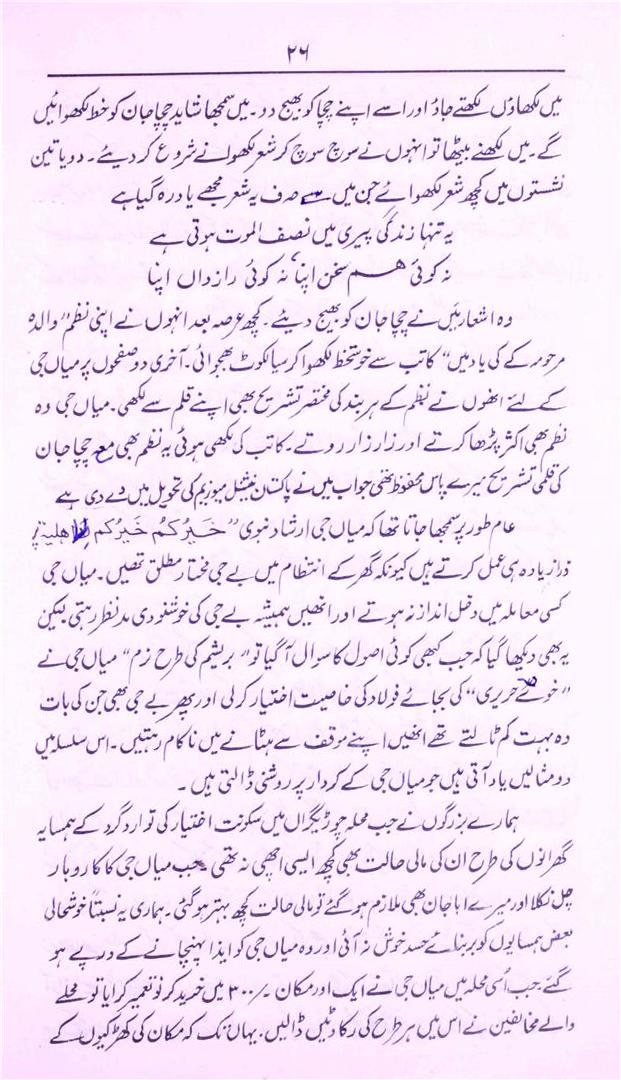 ۲۶
میں لکھاؤں لکھتے جاؤ اور اسے اپنے چچا کو بھیج دو۔ میں سمجھا شاید چچا جان کو خط لکھوائیں
گے۔ میں لکھنے بیٹھا تو انہوں نے سوچ سوچ کر شعر لکھوانے شروع کر دیئے۔ دو یا تین
نشستوں میں کچھ شعر لکھوائے جن میں سے صرف یہ شعر مجھے یاد رہ گیا ہے
یہ تنہا زندگی پیری میں نصف الموت ہوتی ہے
نہ کوئی ہم سخن اپنا، نہ کوئی رازداں اپنا
وہ اشعار میں نے چچا جان کو بھیج دیئے۔ کچھ عرصہ بعد انہوں نے اپنی نظم "والدہ
مرحومہ کے کی یاد میں" کاتب سے خوشخط لکھوا کر سیالکوٹ بھجوائی۔ آخری دو صفحوں پر میاں جی
کے لئے انھوں نے نظم کے ہر بند کی مختصر تشریح بھی اپنے قلم سے لکھی۔ میاں جی وہ
نظم بھی اکثر پڑھا کرتے اور زار زار روتے۔ کاتب کی لکھی ہوئی یہ نظم بھی مع چچا جان
کی قلمی تشریح میرے پاس محفوظ تھی جو اب میں نے پاکستان نیشنل میوزیم کی تحویل میں دے دی ہے
عام طور پر سمجھا جاتا تھا کہ میاں جی ارشاد نبوی "خَیرُکُم خَیرُکُم لاھلیہ" پر
ذرا زیادہ ہی عمل کرتے ہیں کیونکہ گھر کے انتظام میں بے جی مختار مطلق تھیں۔ میاں جی
کسی معاملہ میں دخل انداز نہ ہوتے اور انھیں ہمیشہ بے جی کی خوشنودی مد نظر رہتی لیکن
یہ بھی دیکھا گیا کہ جب کبھی کوئی اصول کا سوال آ گیا تو "بریشم کی طرح نرم" میاں جی نے
"خوئے حریری" کی بجائے فولاد کی خاصیت اختیار کر لی اور پھر بے جی بھی جن کی بات
وہ بہت کم ٹالتے تھے انھیں اپنے موقف سے ہٹانے میں ناکام رہتیں۔ اس سلسلہ میں
دو مثالیں یاد آتی ہیں جو میاں جی کے کردار پر روشنی ڈالتی ہیں۔
ہمارے بزرگوں نے جب محلہ چوڑیگراں میں سکونت اختیار کی تو ارد گرد کے ہمسایہ
گھرانوں کی طرح ان کی مالی حالت بھی کچھ ایسی اچھی نہ تھی۔ جب میاں جی کا کاروبار
چل نکلا اور میرے ابا جان بھی ملازم ہو گئے تو مالی حالت کچھ بہتر ہو گئی۔ ہماری یہ نسبتاً خوشحالی
بعض ہمسایوں کو بر بنائے حسد خوش نہ آئی اور وہ میاں جی کو ایذا پہنچانے کے درپے ہو
گئے۔ جب اُسی محلہ میں میاں جی نے ایک اور مکان -/۳۰۰ میں خرید کر نو تعمیر کرایا تو محلے
والے مخالفین نے اس میں ہر طرح کی رکاوٹیں ڈالیں۔ یہاں تک کہ مکان کی کھڑکیوں کے